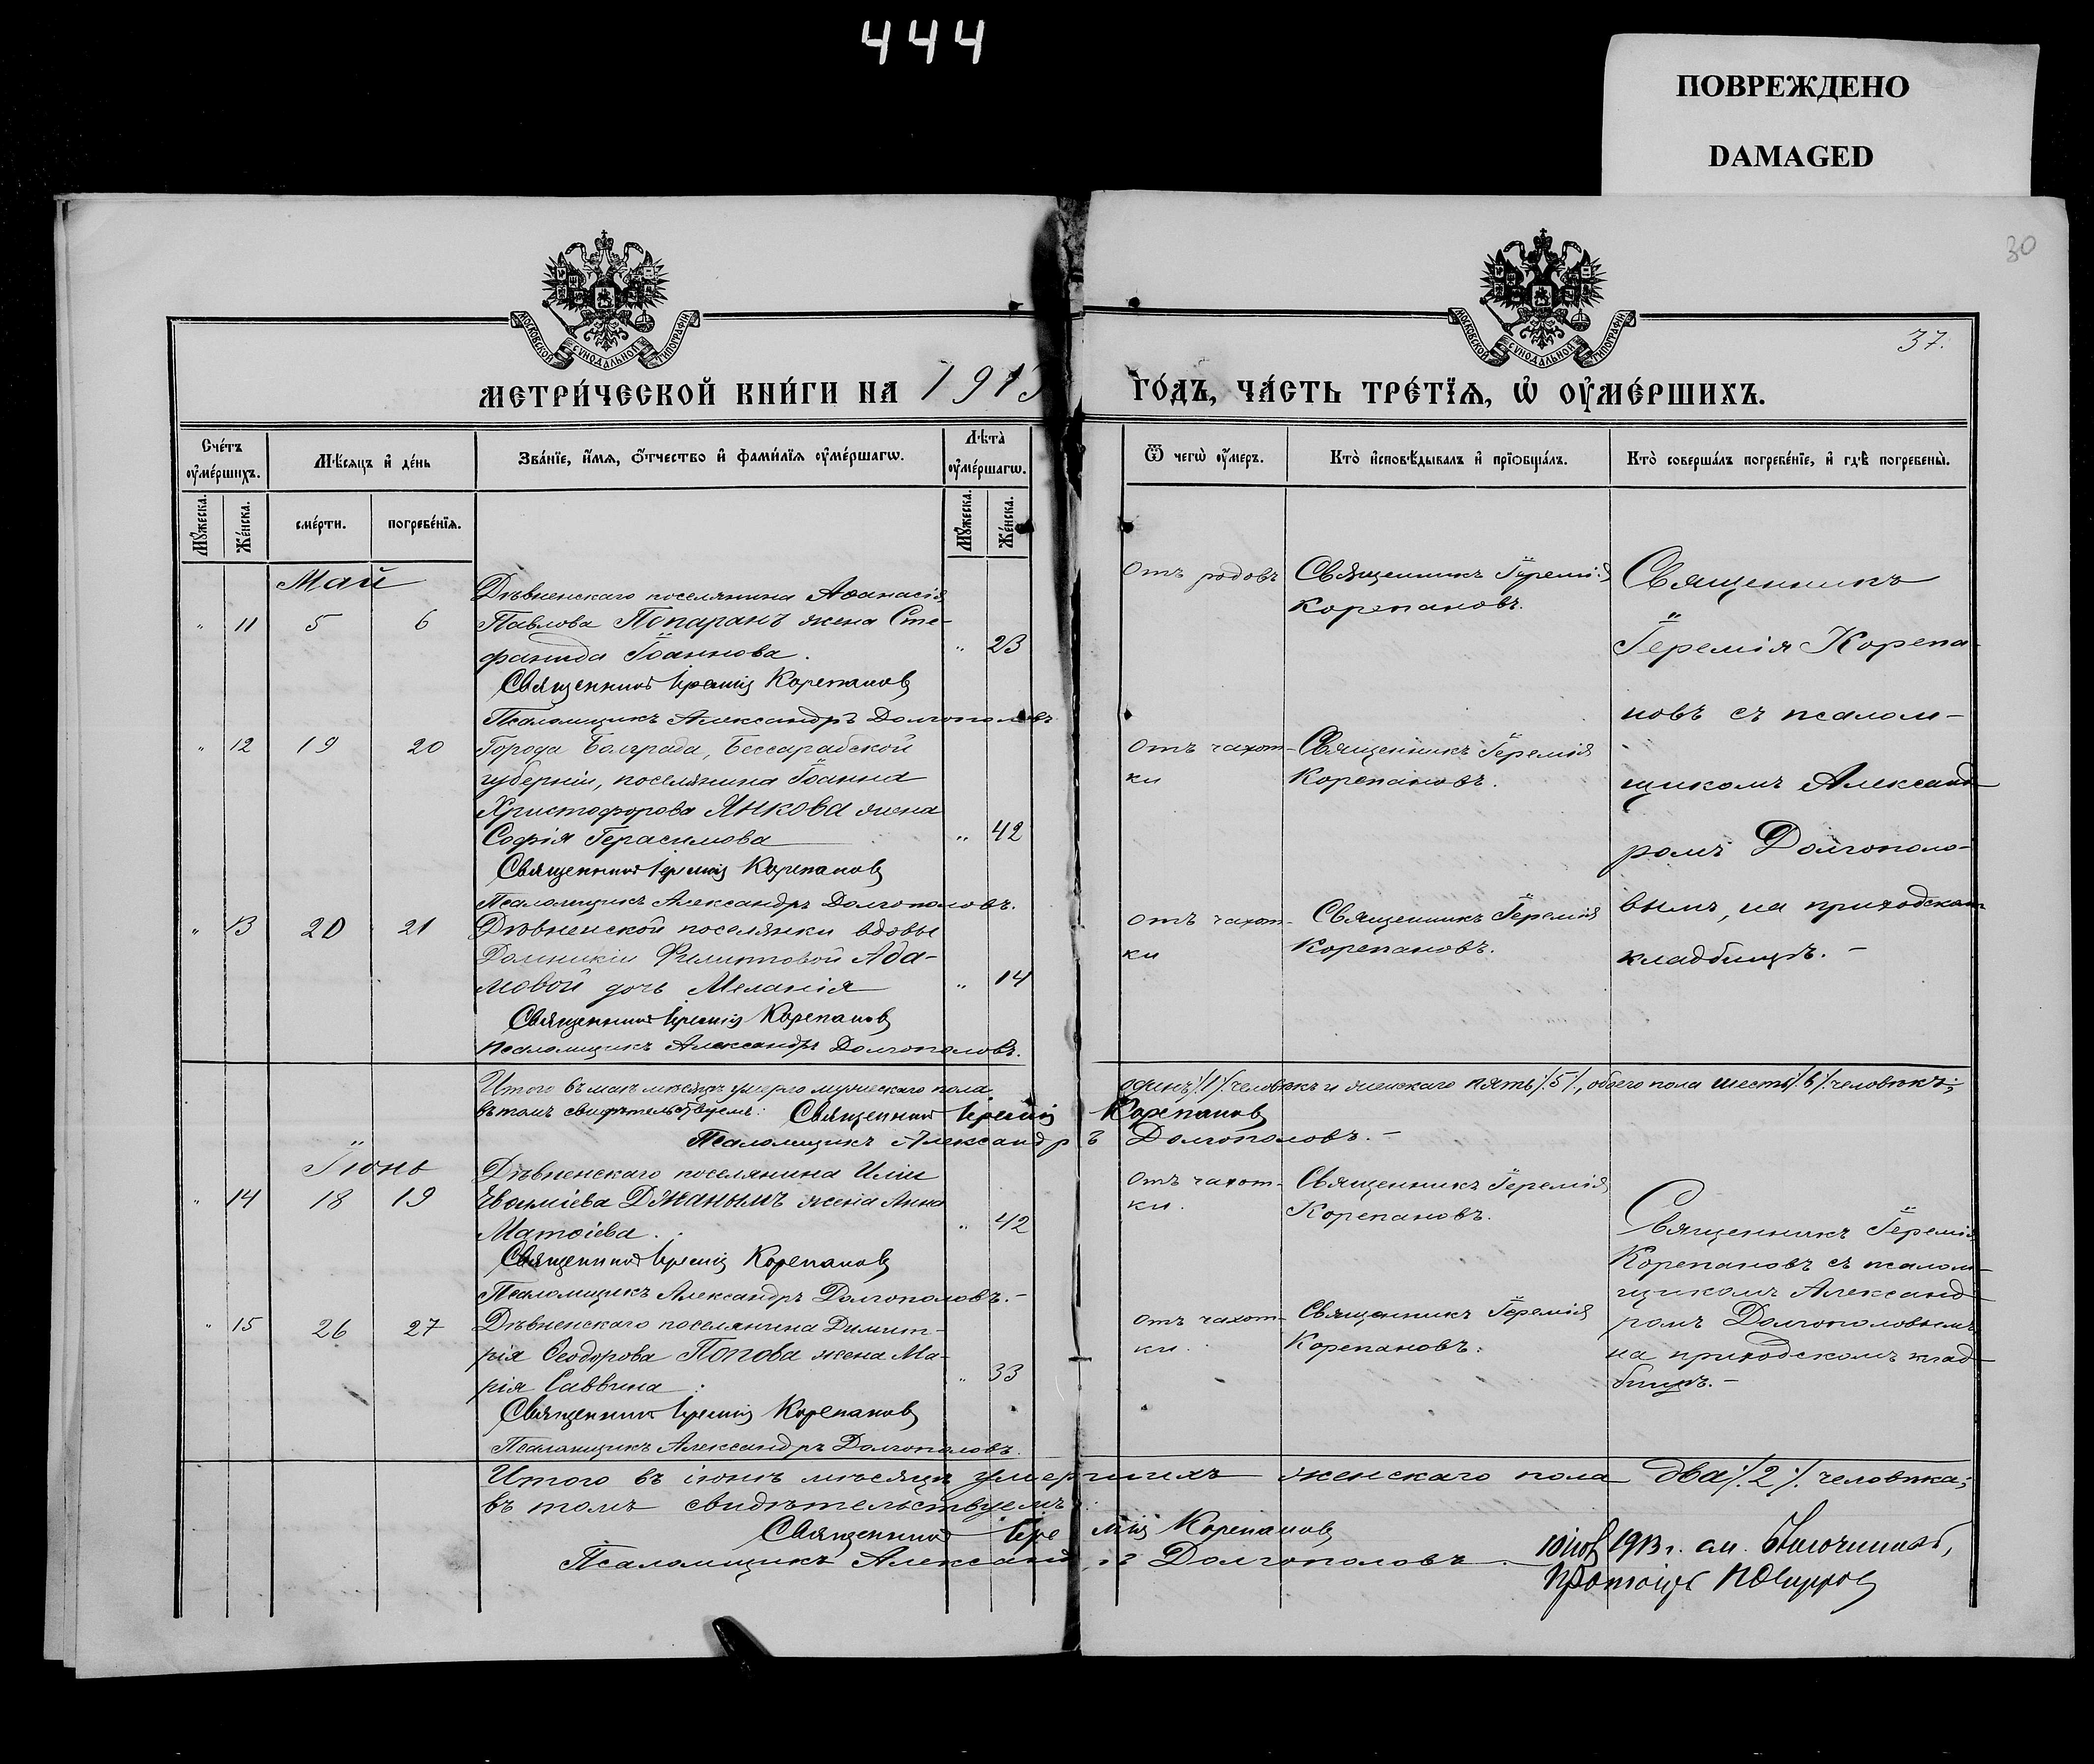 444
ПОВРЕЖДЕНО
DAMAGED
30
МОСКОВСКОЙ СУНОДАЛЬНОЙ ТИПОГРАФІИ
МОСКОВСКОЙ СУНОДАЛЬНОЙ ТИПОГРАФІИ
37.
МЕТРИ́ЧЕСКОЙ КНИ́ГИ НА 1913
ГО́ДЪ, ЧА́СТЬ ТРЕ́ТЇѦ, Ѡ҆ ОУ҆МЕ́РШИХЪ.
Сче́тъ оу҆ме́ршихъ.
Мѣ́сяцъ и҆ де́нь
Зва́нїе, и҆́мя, ѻ҆́тчество и҆ фами́лїя оу҆ме́ршагѡ.
Лѣта̀ оу҆ме́ршагѡ.
Ѿ чегѡ̀ оу҆́меръ.
Кто̀ и҆сповѣ́дывалъ и҆ прїѡбща́лъ.
Кто̀ соверша́лъ погребе́нїе, и҆ гдѣ̀ погребены̀.
Мꙋ́жеска.
Же́нска.
сме́рти.
погребе́нїя.
Мꙋ́жеска.
Же́нска.
Май
" 11 5 6
Дѣвненскаго поселянина Аѳанасія
Павлова Попаранъ жена Сте-
фанида Іоаннова.
" 23
Священникъ Іеремія Корепановъ
Псаломщикъ Александръ Долгополовъ
Отъ родовъ
Священникъ Іеремія
Корепановъ.
Священникъ
Іеремія Корепа-
новъ съ псалом-
щикомъ Александ-
ромъ Долгополо-
вымъ, на приходском
кладбищѣ. –
" 12 19 20
Города Болграда, Бессарабской
губерніи, поселянина Іоанна
Христофорова Янкова жена
Софія Герасимова
" 42
Священникъ Іеремія Корепановъ
Псаломщикъ Александръ Долгополовъ.
Отъ чахот-
ки
Священникъ Іеремія
Корепановъ.
" 13 20 21
Дѣвненской поселянки вдовы
Домникіи Филипповой Ада-
мовой дочь Меланія
" 14
Священникъ Іеремія Корепановъ
Псаломщикъ Александръ Долгополовъ.
Отъ чахот-
ки
Священникъ Іеремія
Корепановъ.
Итого въ маѣ мѣсяцѣ умерло мужескаго пола одинъ /1/ человѣкъ и женскаго пять /5/, обоего пола шесть /6/ человѣкъ;
въ томъ свидѣтельствуемъ: Священникъ Іеремія Корепановъ
Псаломщикъ Александръ Долгополовъ. –
Іюнь
" 14 18 19
Дѣвненскаго поселянина Иліи
Евѳиміева Джанымъ жена Анна
Матѳіева.
" 42
Священникъ Іеремія Корепановъ
Псаломщикъ Александръ Долгополовъ. –
Отъ чахот-
ки.
Священникъ Іеремія
Корепановъ.
Священникъ Іеремія
Корепановъ съ псалом-
щикомъ Александ-
ромъ Долгополовымъ
на приходскомъ клад-
бищѣ. –
" 15 26 27
Дѣвненскаго поселянина Димит-
рія Ѳеодорова Попова жена Ма-
рія Саввина
" 33
Священникъ Іеремія Корепановъ
Псаломщикъ Александръ Долгополовъ.
Отъ чахот-
ки.
Священникъ Іеремія
Корепановъ.
Итого въ іюнѣ мѣсяцѣ умершихъ женскаго пола два /2/ человѣка;
въ томъ свидѣтельствуемъ:
Священникъ Іеремія Корепановъ
Псаломщикъ Александръ Долгополовъ.
1913 г.